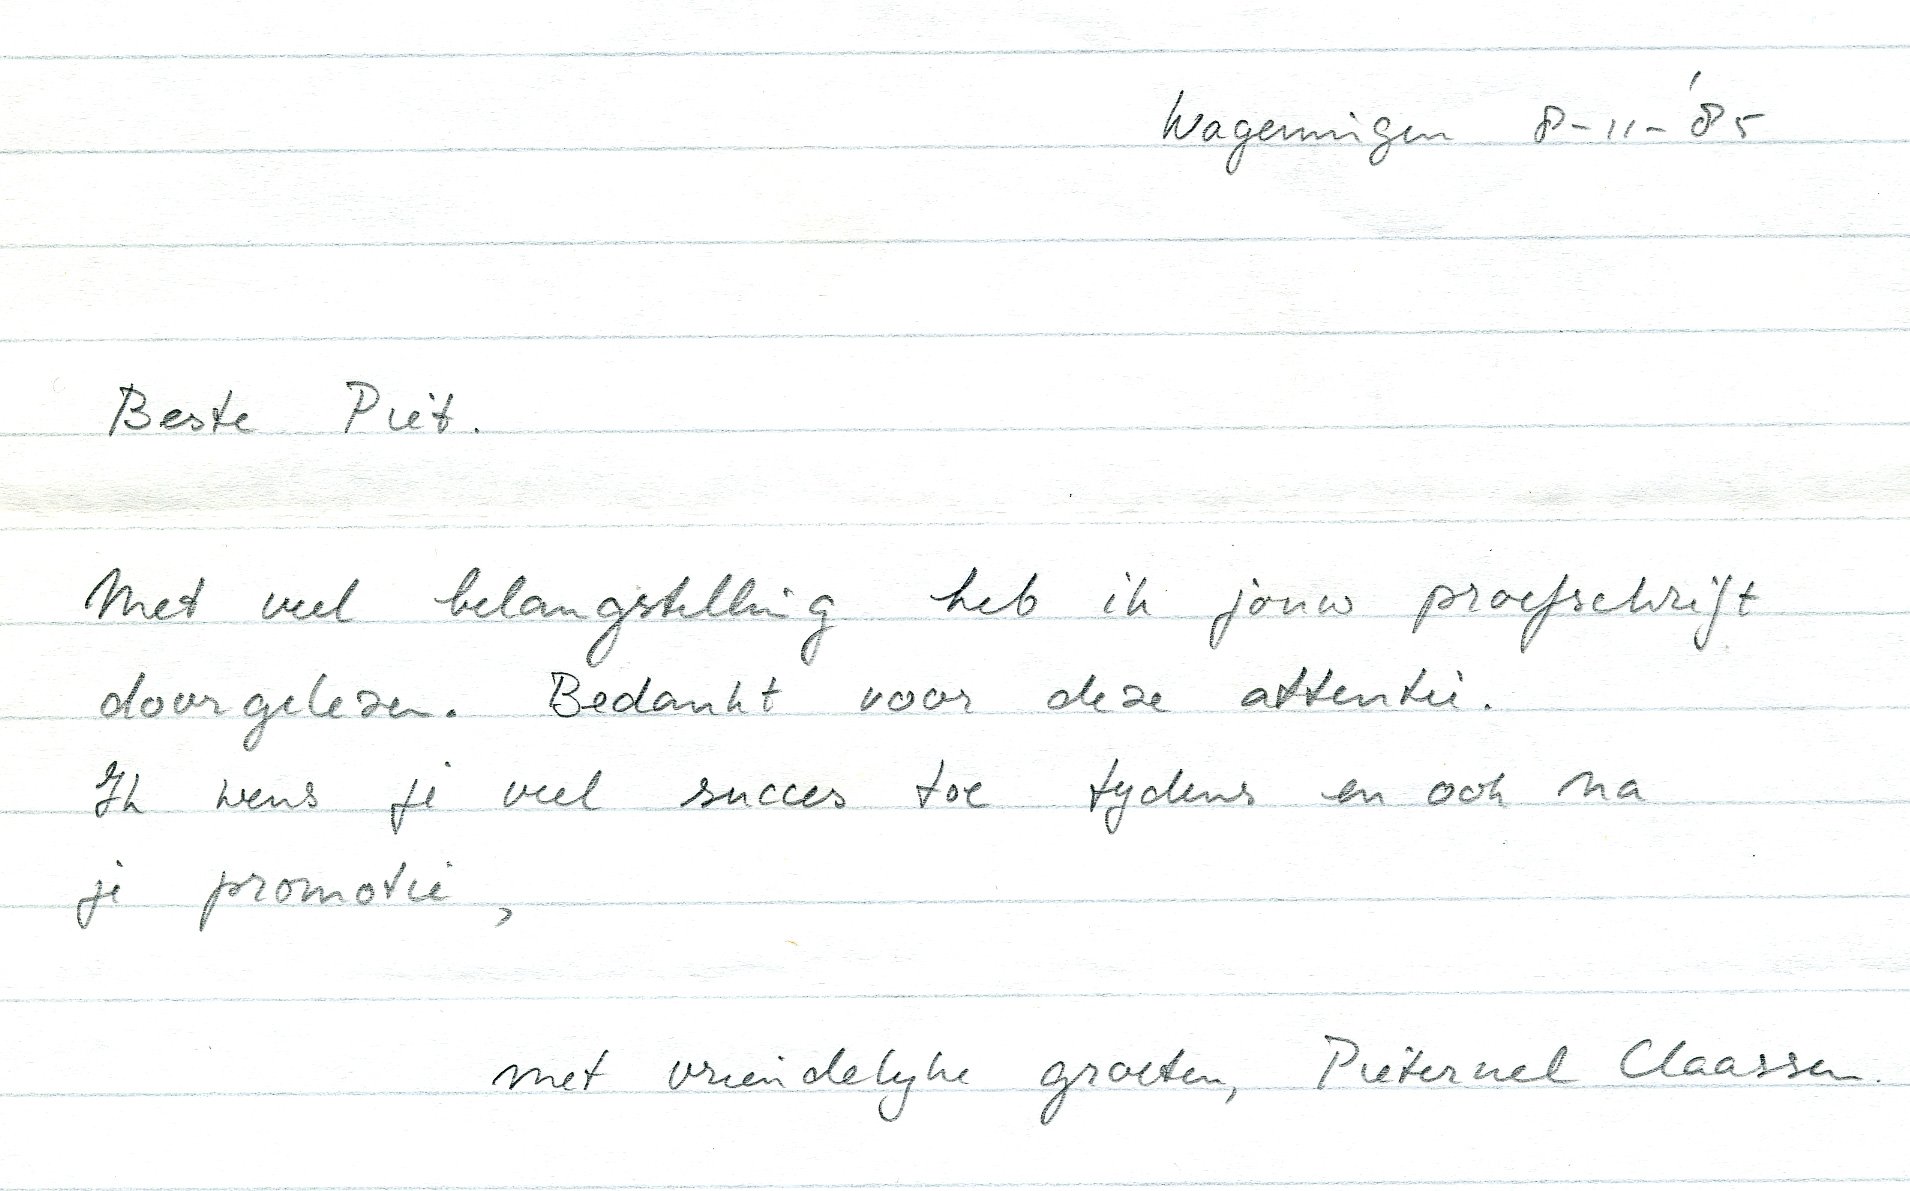 Wageningen 8-11-'85
Beste Piet.
Met veel belangstelling heb ik jouw proefschrift
doorgelezen. Bedankt voor deze attentie.
Ik wens je veel succes toe tydens en ook na
je promotie,
met vriendelyke groeten, Pieternel Claassen.